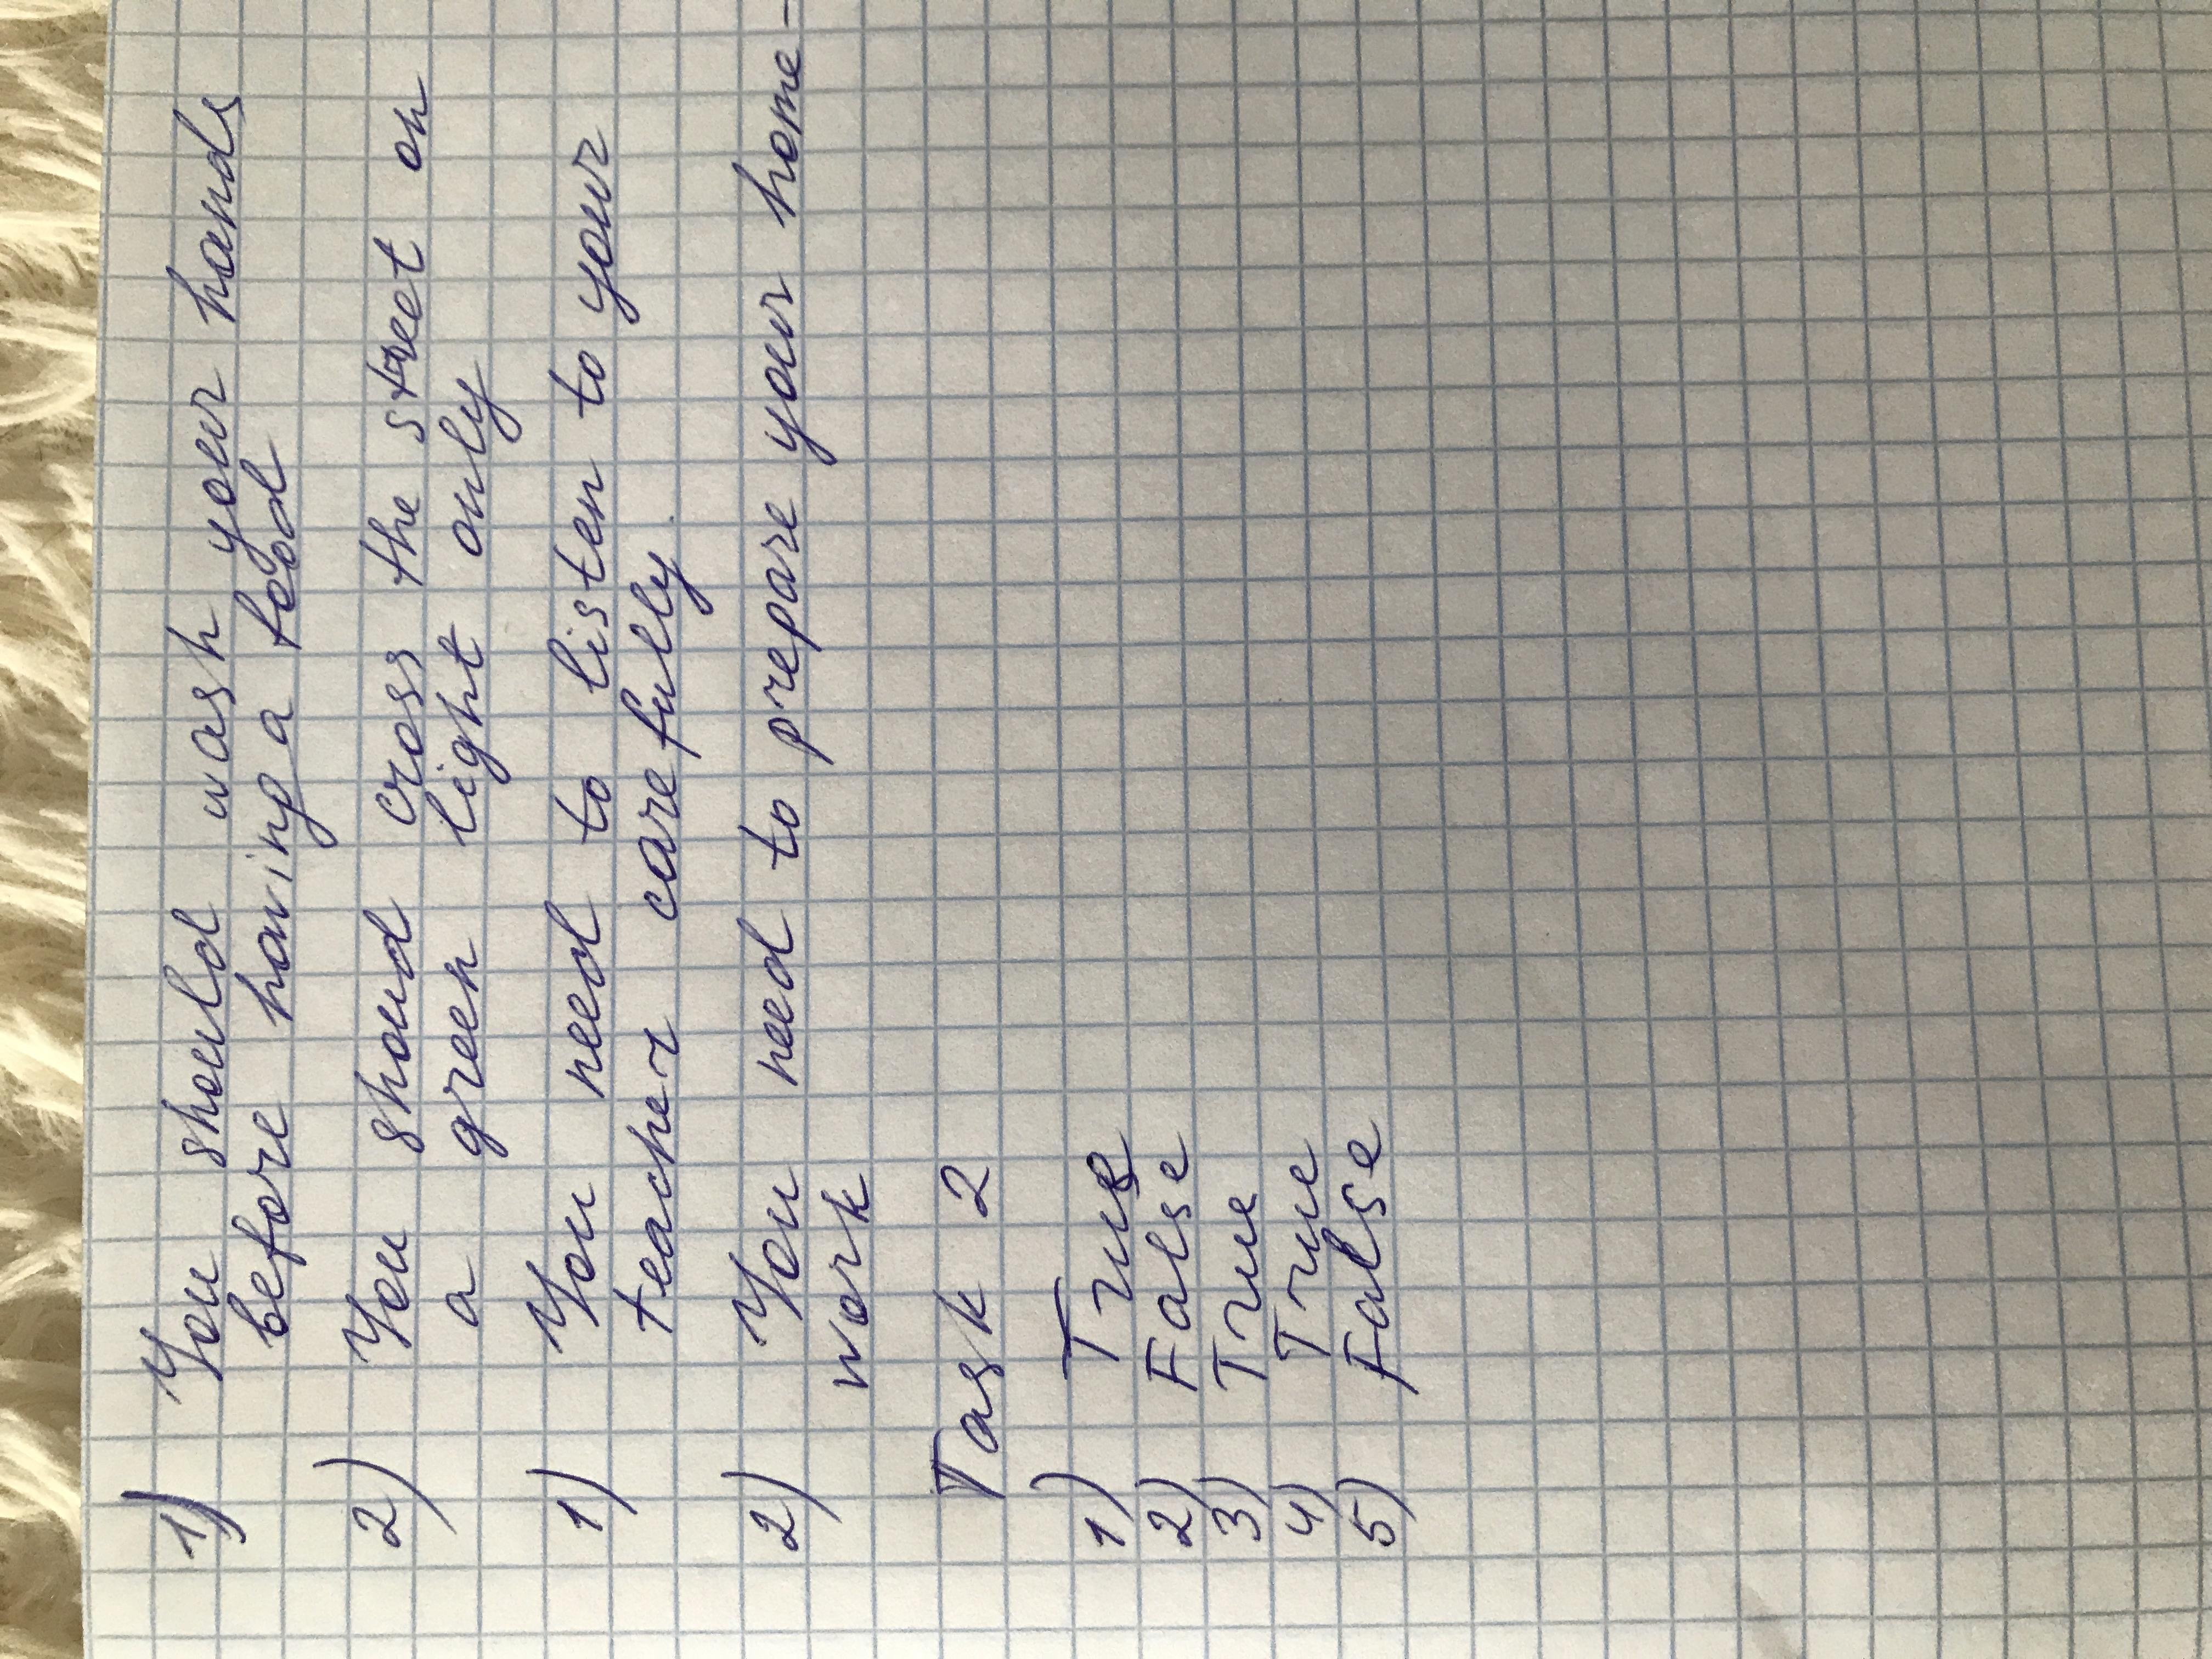 1) You should wash your hands
before having a food
2) You shoud cross the street on
a green light only
1) You need to listen to your
teacher carefully.
2) You need to prepare your home-
work
Task 2
1) True
2) False
3) True
4) True
5) False